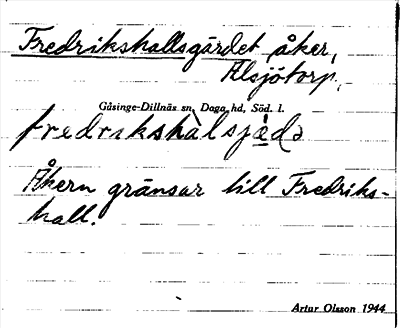 Fredrikshallsgärdet, åker,
Älsjötorp,
Gåsinge-Dillnäs sn, Daga hd, Söd. l.
fredrikshàlsjǽḍə
Åkern gränsar till Fredriks-
hall.
Artur Olsson 1944